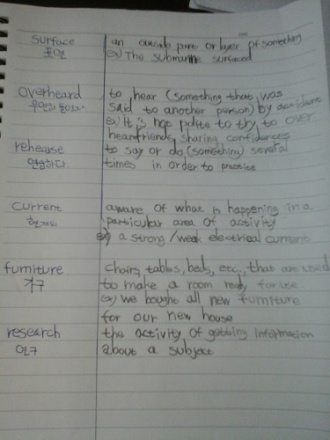 surface an outside part or layer of something
ex) The submarine surfaced
overheard to hear (something that was
said to another person) by accident
ex) It is not polite to try to over
hear friends sharing confidences
rehease to say or do (something) several
연습하다 times in order to practice
current aware of what is happening in a
particular area of activity
ex) a strong/weak electrical current
furniture chairs, tables, beds, etc, that are used
가구 to make a room ready for use
ex) we bought all new furniture
for our new house
research the activity of getting information
연구 about a subject